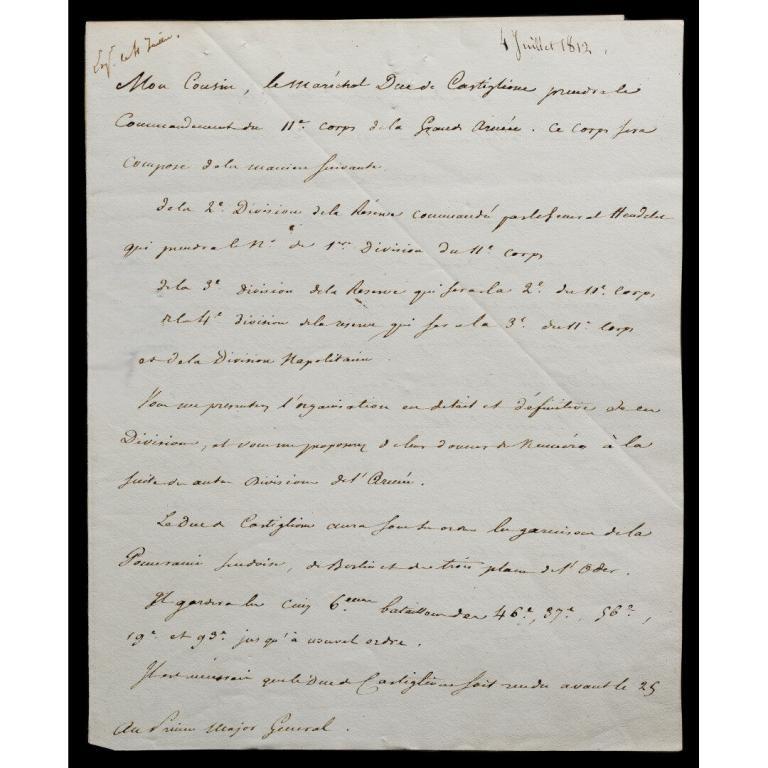 4 Juillet 1812.
Exp. le 4 Juillet.
Mon Cousin, le maréchal Duc de Castiglione prendra le
Commandement du 11e. corps de la Grande Armée. Ce corps sera
composé de la maniere suivante
de la 2e. Division de la Réserve commandée par le General Heudelet
qui prendra le No. de 1re. Division du 11e. corps
de la 3e. division de la Reserve qui sera la 2e. du 11e. corps
de la 4e. division de la reserve qui sera la 3e. du 11e. corps
et de la Division Napolitaine.
Vous me presenterez l'organisation en détail et définitive de ces
Divisions, et vous me proposerez de leur donner des Numéros à la
suite des autres Divisions de l'Armée.
Le Duc de Castiglione aura sous ses ordres les garnisons de la
Pomeranie suedoise, de Berlin et des trois places de l'Oder.
Il gardera les cinq 6emes bataillons des 46e., 37e., 56e.,
19e. et 93e. jusqu'à nouvel ordre.
Il est nécessaire que le Duc de Castiglione soit rendu avant le 25
Au Prince Major General.